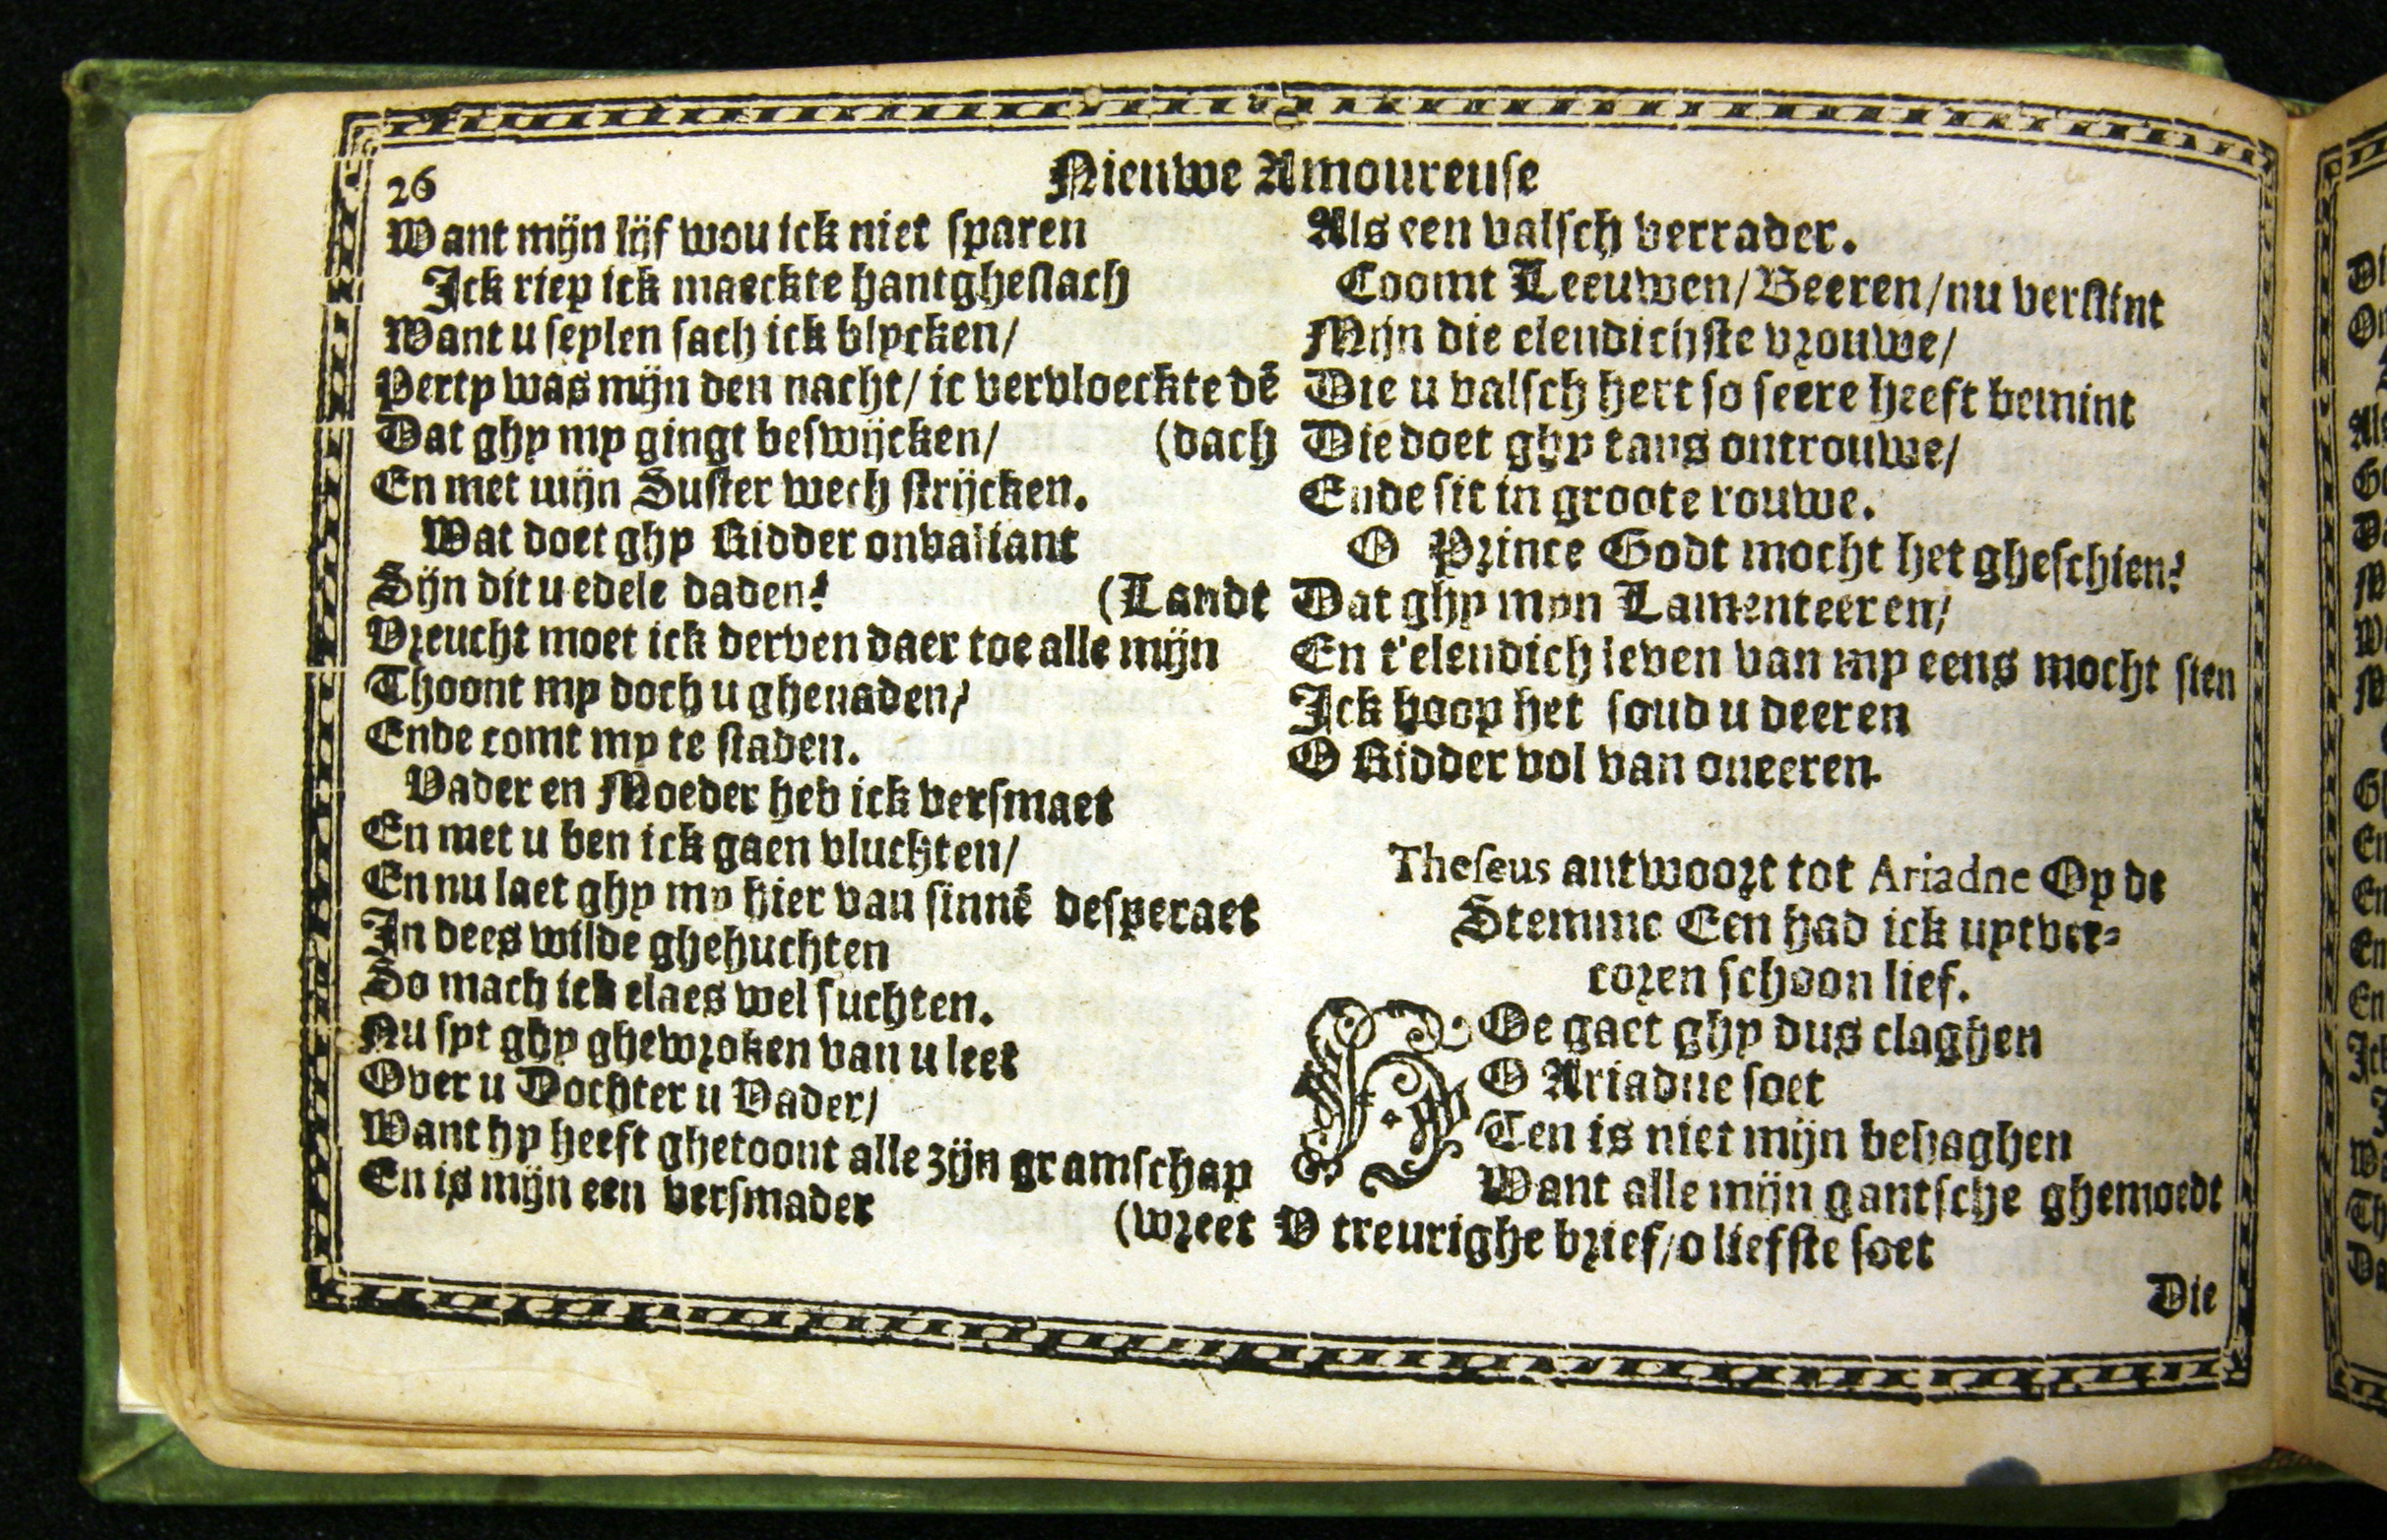 26
Nieuwe Amoureuse
Want mijn lijf wou ick niet sparen
Ick riep ick maeckte hantgheslach
Want u seylen sach ick blycken/
Perty was mijn den nacht/ ic vervloeckte dē
Dat ghy my gingt beswijcken/ (dach
En met mijn Suster wech strijcken.
Wat doet ghy Ridder onvaliant
Sijn dit u edele daden? (Landt
Vreucht moet ick derven daer toe alle mijn
Thoont my doch u ghenaden/
Ende comt my te staden.
Vader en Moeder heb ick versmaet
En met u ben ick gaen vluchten/
En nu laet ghy my hier van sinnē desperaet
In dees wilde ghehuchten
So mach ick elaes wel suchten.
Nu syt ghy ghewroken van u leet
Over u Dochter u Vader/
Want hy heeft ghetoont alle zijn gramschap
En is mijn een versmader (wreet
Als een valsch verrader.
Coomt Leeuwen/Beeren/nu verslint
Mijn die elendichste vrouwe/
Die u valsch hert so seere heeft bemint
Die doet ghy tans ontrouwe/
Ende sit in groote rouwe.
O Prince Godt mocht het gheschien?
Dat ghy myn Lamenteeren/
En t'elendich leven van my eens mocht sien
Ick hoop het soud u deeren
O Ridder vol van oneeren.
Theseus antwoort tot Ariadne Op de
Stemme Een had ick uytver-
coren schoon lief.
HOe gaet ghy dus claghen
O Ariadne soet
Ten is niet mijn behaghen
Want alle mijn gantsche ghemoedt
V treurighe brief/o liefste soet
Die